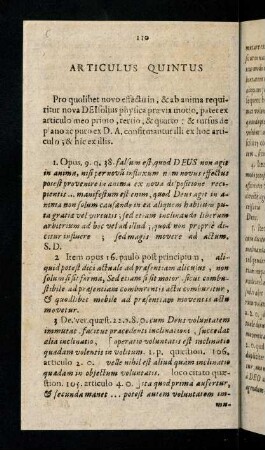 110
ARTICULUS QUINTUS
Pro quolibet novo effectu in, & ab anima requi-
ritur nova DEI solius physica prævia motio, patet ex
articulo meo primo, tertio, & quarto: & rursus de
plano ac puro ex D. A. confirmantur illi ex hoc arti-
culo; & hic ex illis.
1. Opus. 9. q. 38. falsum est quod DEUS non agit
in anima, nisi per novum influxum novus effectus
potest provenire in anima ex nova dispositione reci-
pientis... manifestum est enim, quod Deus agit in ani-
ma non solum causando in ea aliquem habitum pu-
ta gratiæ vel virtutis, sed etiam inclinando liberum
arbitrium ad hic vel ad illud, quod non propriè di-
citur influere; sed magis movere ad actum,
S. D.
2 Item opus 16. paulo post principium, ali-
quid potest dici actuale ad præsentiam alicujus, non
solum si sit forma, Sed etiam si sit motor, sicut combu-
stibile ad præsentiam comburentis actu comburitur,
& quodlibet mobile ad præsentiam moventis actu
movetur.
3 De. ver. quæst. 22. a. 8. o. cum Deus voluntatem
immutat. facit ut præcedenti inclinationi, succedat
alia inclinatio, operatio voluntatis est inclinatio
quædam volentis in volitum. 1. p. quæstion. 106.
articulo 2. o. velle nihil est aliud quàm inclinatio
quædam in objectum voluntatis. loco citato quæ-
stion. 105. articulo 4. o. ita quod prima aufertur,
& secunda manet ... potest autem voluntatem im-
mu-